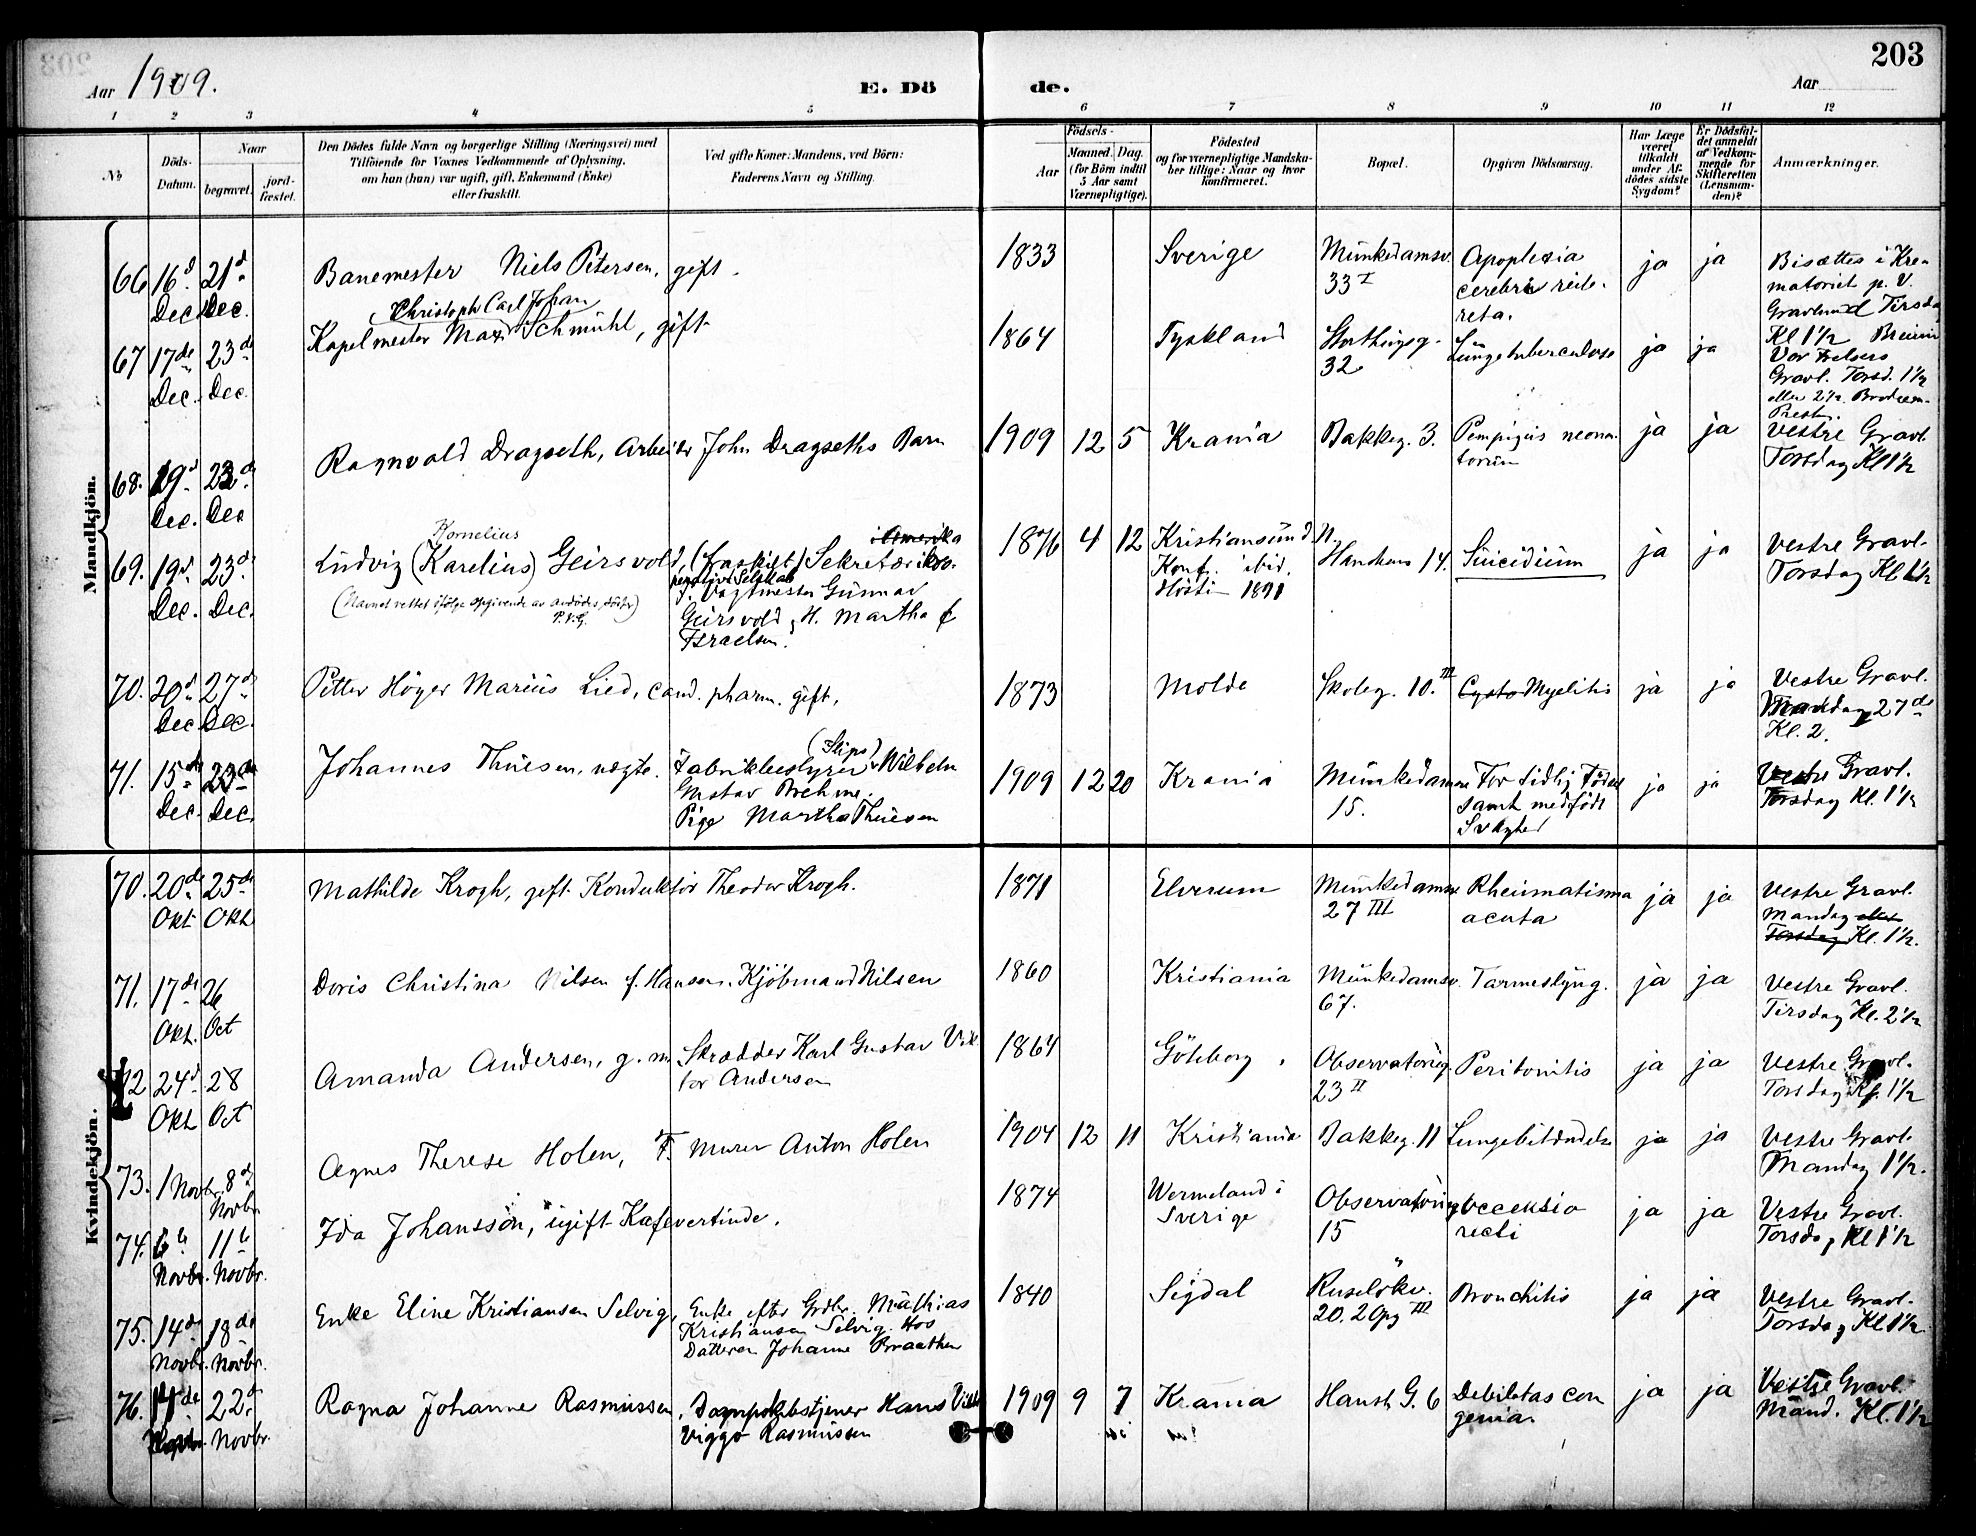 203
Aar 1909.
E. Dö de.
Aar
1 2 3 4 5 6 7 8 9 10 11 12
No
Döds-Datum.
Naar
begravet.
jord-fæstet.
Den Dödes fulde Navn og borgerlige Stilling (Næringsvei) med
Tilföiende for Voxnes Vedkommende af Oplysning,
om han (hun) var ugift, gift, Enkemand (Enke)
eller fraskilt.
Ved gifte Koner: Mandens, ved Börn:
Faderens Navn og Stilling.
Födsels-
Aar
Maaned. Dag.
(for Börn indtil
5 Aar samt
Værnepligtige).
Födested
og for værnepligtige Mandska-
ber tillige: Naar og hvor
konfirmeret.
Bopæl.
Opgiven Dödsaarsag.
Har Læge
været
tilkaldt
under Af-
dödes sidste
Sygdom?
Er Dödsfal-
det anmeldt
af Vedkom-
mende for
Skifteretten
(Lensman-
den)?
Anmærkninger.
Mandkjön.
66 16d Dec 21d Dec. Banemester Niels Petersen, gift. 1833 Sverige Munkedamsv. 33 I Apoplexia cerebri reite-reta. ja ja Bisættes i Kre-
matoriet p. V.
Gravlund Tirsdag
Kl 1½
67 17de Dec. 23de Dec. Kapelmester Max (Christoph Carl Johan) Schmühl, gift 1864 Tyskland Storthingsg. 32 Lungetuberculose ja ja Vor Frelsers
Gravl. Torsd. 1½
eller 2½.
68. 19d Dec. 23d Dec Ragnvald Dragseth, Arbeider John Dragseths Barn 1909 12 5 Krania Bakkeg. 3. Pempigus neona-
torum ja ja Vestre Gravl.
Torsdag Kl 1½
69. 19d. Dec. 23d. Dec. Ludvig (Karelius) Kornelius Geirsvold, (fraskilt) Sekretær i Koo-
perativt Selskab i Amerika
(Navnet rettet ifølge Opgivende av
P.V.G.
f. Vagtmester Gunnar
Geirsvold, H. Martha f
Israelsen.
1876 4 12 Kristiansund N.
Konf. ibid.
Hösten 1891 Hansthens 14. Suicidium ja ja Vestre Gravl.
Torsdag Kl 1½
70. 20d Dec 27d Dec. Petter Höyer Marius Lied, cand. pharm. gift. 1873 Molde Skoleg. 10. III Cysto Myelitis ja ja Vestre Gravl.
Mandag 27de
Kl. 2.
71. 15de Dec. 23de Dec. Johannes Thuesen, uægte. Fabrikbestyrer (Slips) Wilhelm
Gustav Boehme.
Pige Martha Thuesen
1909 12 20 Krania Munkedamsv 15. For tidlig Födsel
samt medfödt
Svaghed ja ja Vestre Gravl.
Torsdag Kl. 1½
Kvindekjön.
70. 20de Okt 25de Okt Mathilde Krogh, gift Konduktör Theodor Krogh. 1871 Elverum Munkedamsv 27 III Rheumatisma
acuta ja ja Vestre Gravl.
Mandag eller
Torsdag Kl. 1½.
71. 17de Okt. 26 Oct Doris Christina Nilsen f. Hansen. Kjöbmand Nilsen 1860 Kristiania Munkedamsv. 67. Tarmeslyng. ja ja Vestre Gravl.
Tirsdag Kl. 2½
72 24d Okt 28 Oct Amanda Andersen, g. m. Skrædder Karl Gustav Vik
tor Andersen 1864 Göteborg. Observatorieg. 23 II Peritonitis ja ja Vestre Gravl.
Torsdag Kl. 1½
73. 1 Novbr. 8d Novbr Agnes Therese Holen, F. Murer Anton Holen 1904 12 11 Kristiania Bakkeg. 11 Lungebetændelse ja ja Vestre Gravl.
Mandag 1½.
74. 6te Novbr. 11te Novbr. Ida Johansson, ugift Kafevertinde. 1874 Wermeland i
Sverige Observatorieg 15 recti ja ja Vestre Gravl.
Torsdag Kl 1½
75. 14de Novbr. 18de Novbr. Enke Eline Kristiansen Selvig, Enke efter Grdbr. Mathias
Kristiansen Selvig. Hos
Datteren Johanne Braathen
1840 Sigdal Ruselökv. 20. 2 Opg III Bronchitis ja ja Vestre Gravl.
Torsdag Kl 1½
76. 17de Novbr. 22d. Novbr. Ragna Johanne Rasmussen, Hans
Viggo Rasmussen 1909 9 7 Krania Hansth. G. 6 Debilitas con
genia. ja ja Vestre Gravl.
Mand. Kl. 1½